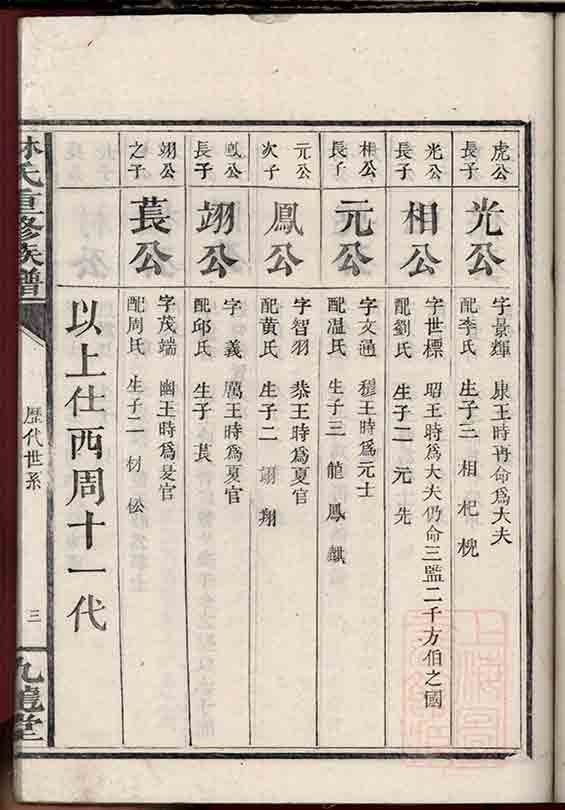 虎公
長子
光公
字景輝　康王時再命爲大夫
配李氏　生子三　相　杞　棿
光公
長子
相公
字世標　昭王時爲大夫仍命三監二千方伯之國
配劉氏　生子二　元　先
相公
長子
元公
字文通　穆王時爲元士
配温氏　生子三　龍　鳳　麒
元公
次子
鳳公
字智羽　恭王時爲夏官
配黄氏　生子二　翊　翔
鳳公
長子
翊公
字　義　厲王時爲夏官
配邱氏　生子　萇
翊公
之子
萇公
字茂端　幽王時爲夏官
配周氏　生子二　材　松
以上仕西周十一代
林氏重修族譜
歷代世系
三
九龍堂
上海圖